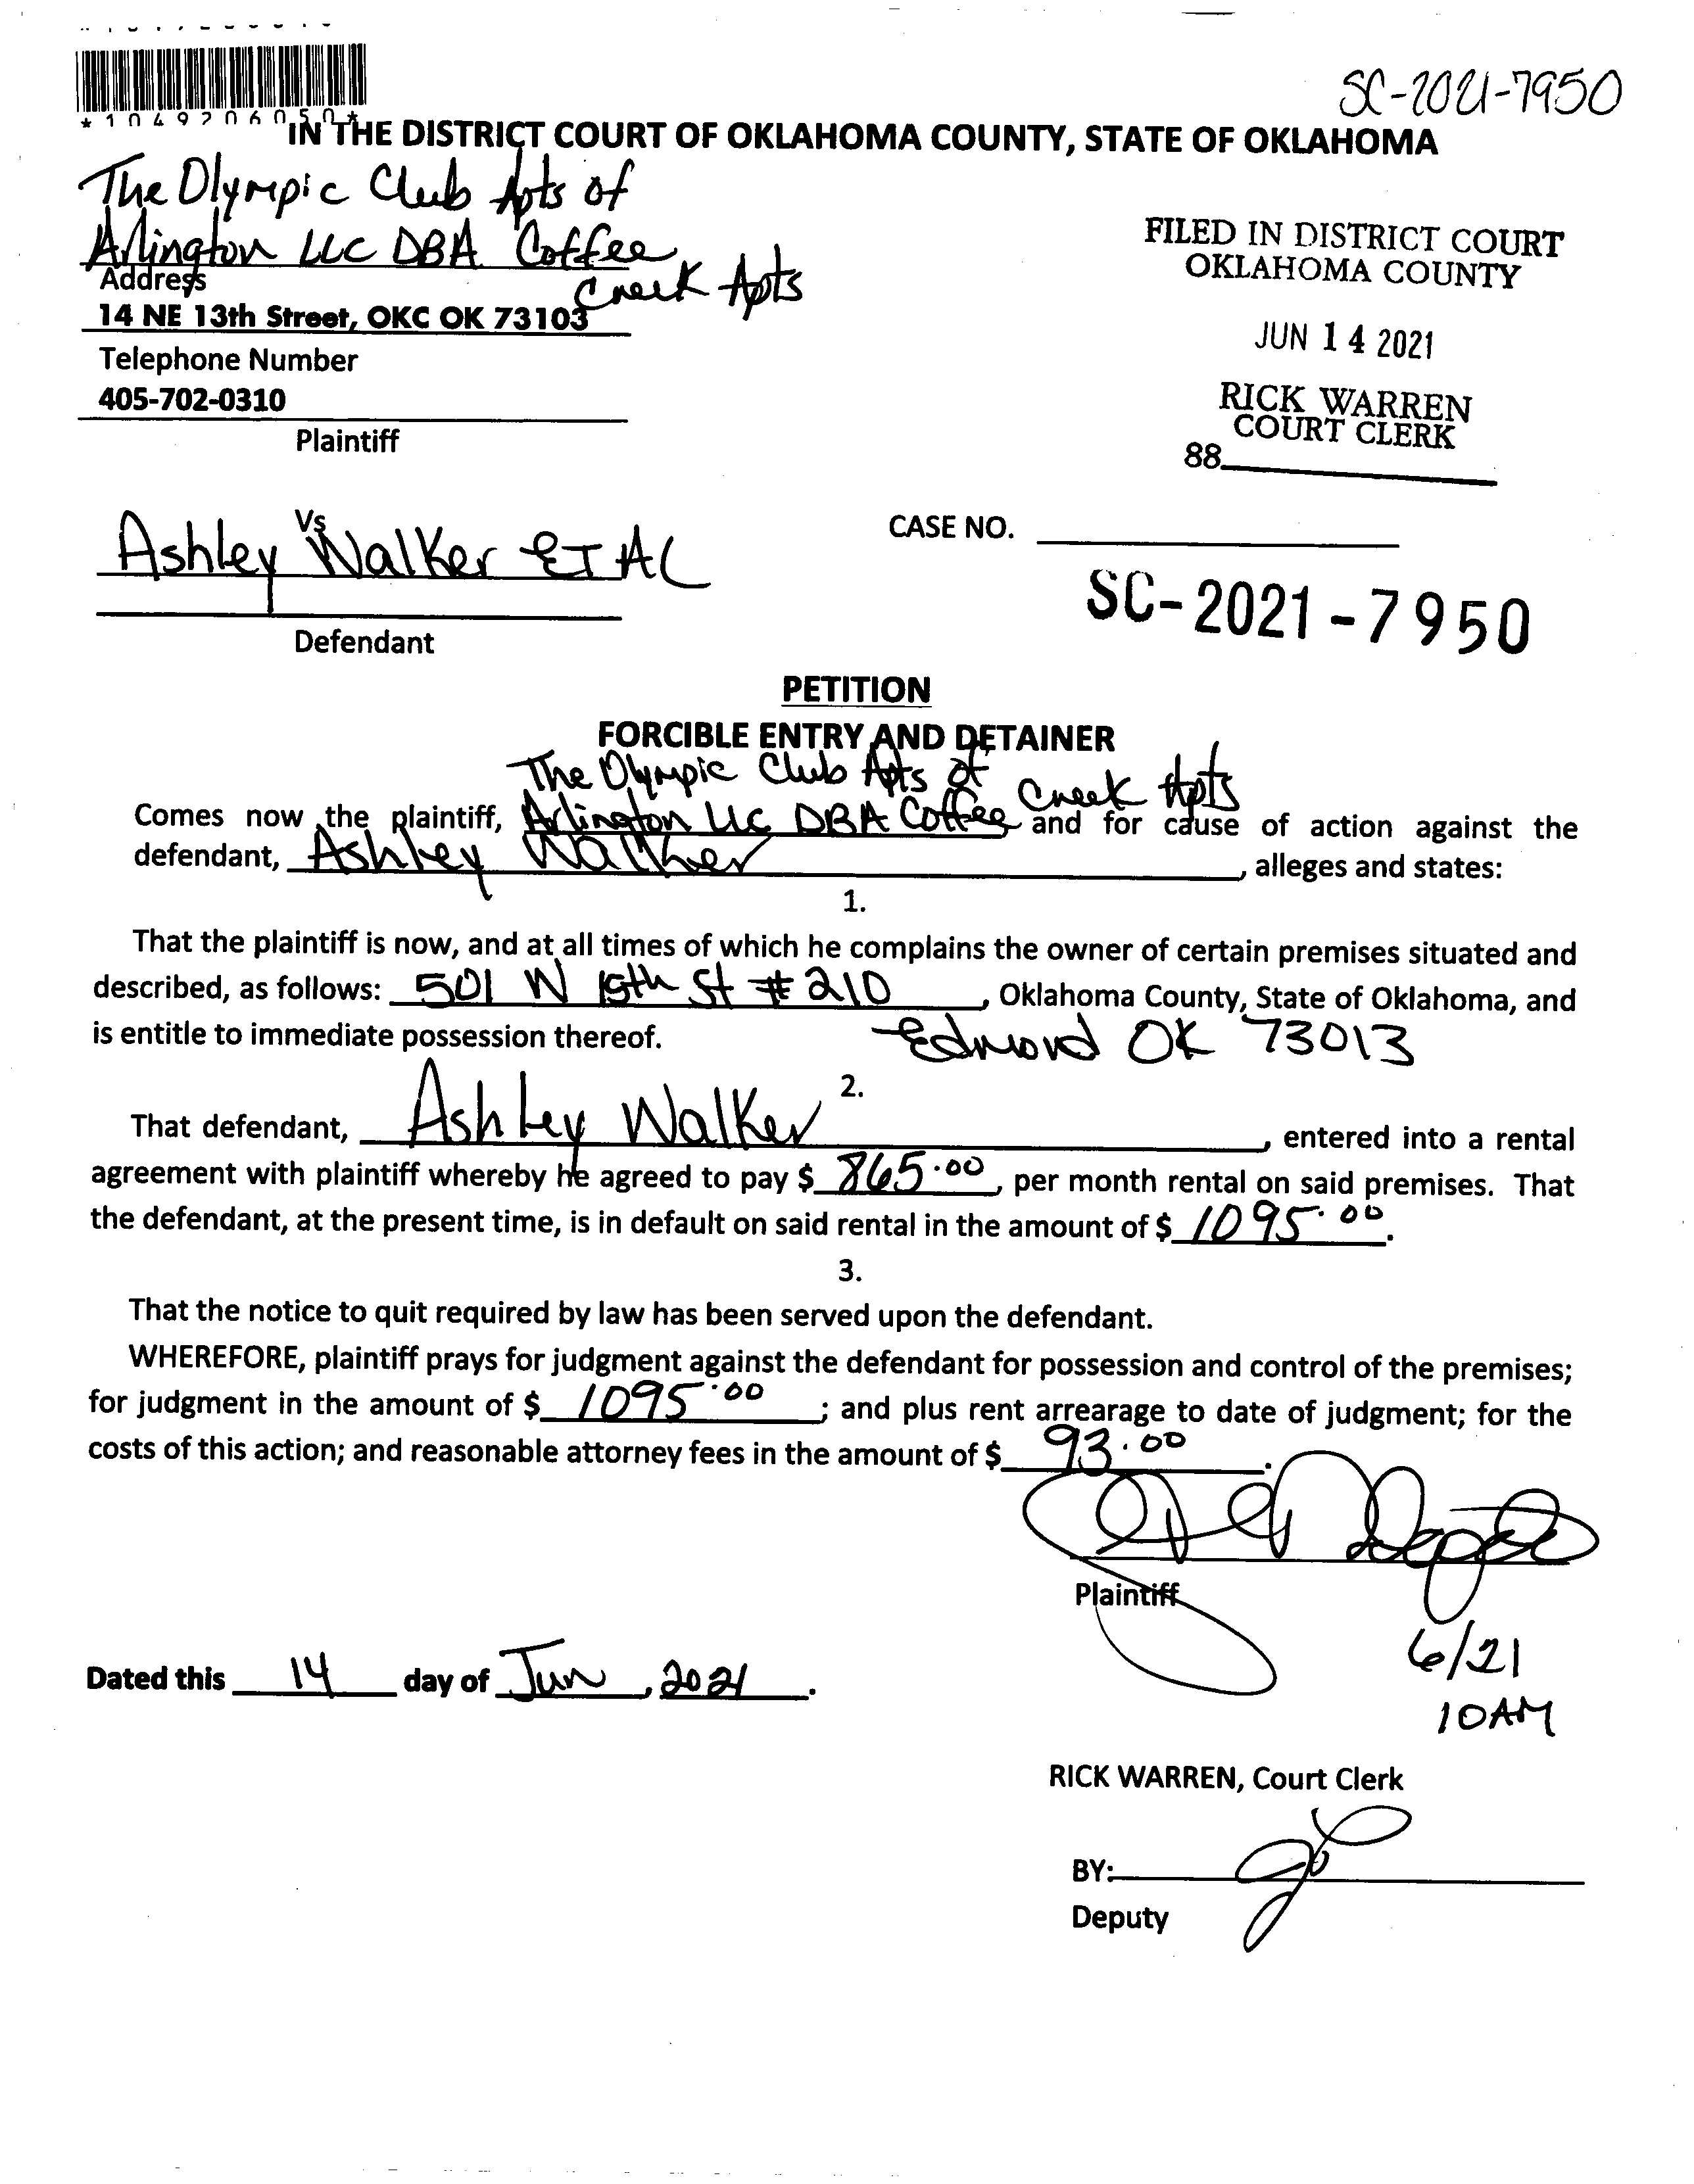 SC-2021-7950
*1049206050*
IN THE DISTRICT COURT OF OKLAHOMA COUNTY, STATE OF OKLAHOMA
The Olympic Club Apts of
Arlington LLC DBA Coffee
Creek Apts
Address
14 NE 13th Street, OKC OK 73103
Telephone Number
405-702-0310
Plaintiff
FILED IN DISTRICT COURT
OKLAHOMA COUNTY
JUN 14 2021
RICK WARREN
COURT CLERK
88
Vs
Ashley Walker ET AL
Defendant
CASE NO.
SC-2021-7950
PETITION
FORCIBLE ENTRY AND DETAINER
The Olympic Club Apts of Creek Apts
Comes now the plaintiff, Arlington LLC DBA Coffee and for cause of action against the
defendant, Ashley Walker, alleges and states:
1.
That the plaintiff is now, and at all times of which he complains the owner of certain premises situated and
described, as follows: 501 W 15th St # 210, Oklahoma County, State of Oklahoma, and
is entitle to immediate possession thereof. Edmond OK 73013
2.
That defendant, Ashley Walker, entered into a rental
agreement with plaintiff whereby he agreed to pay $ 865.00, per month rental on said premises. That
the defendant, at the present time, is in default on said rental in the amount of $ 1095.00.
3.
That the notice to quit required by law has been served upon the defendant.
WHEREFORE, plaintiff prays for judgment against the defendant for possession and control of the premises;
for judgment in the amount of $ 1095.00; and plus rent arrearage to date of judgment; for the
costs of this action; and reasonable attorney fees in the amount of $ 93.00.
Plaintiff
6/21
10AM
Dated this 14 day of Jun, 2021.
RICK WARREN, Court Clerk
BY:
Deputy